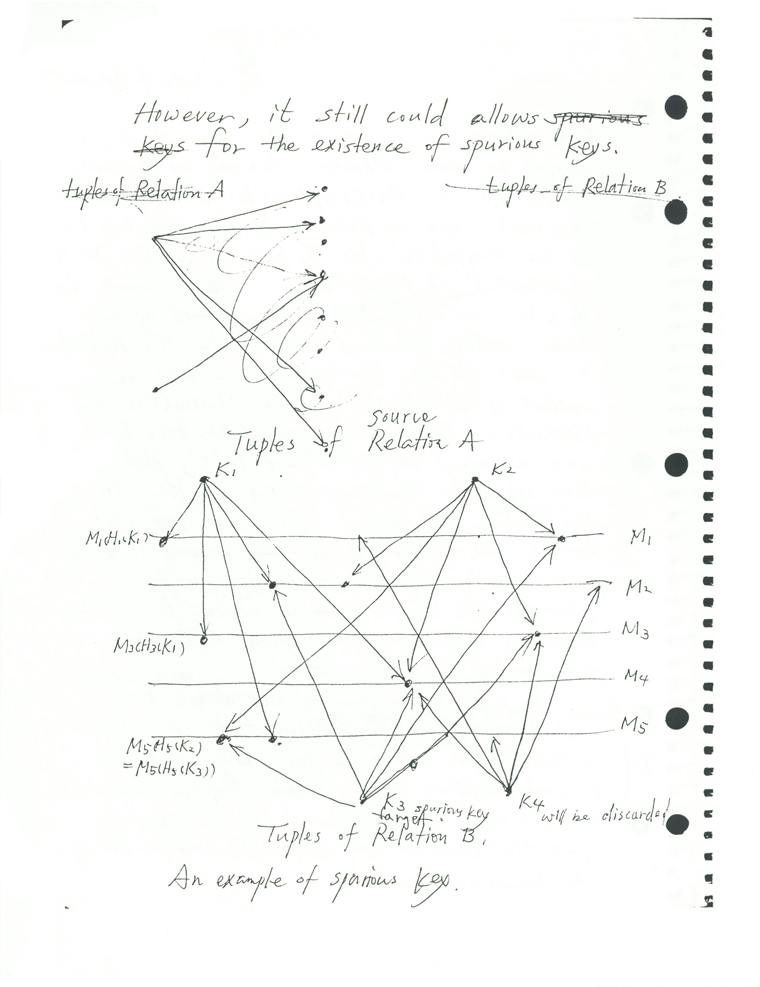 However, it still could allows spurious
keys for the existence of spurious keys.
tuples of Relation A
tuples of Relation B
source
Tuples of Relation A
K1
K2
M1(H1(K1)
M1
M2
M3
M3(H3(K1)
M4
M5
M5(H5(K2)
= M5(H5(K3))
K3 spurious key
target
K4 will be discarded
Tuples of Relation B.
An example of spurious key.